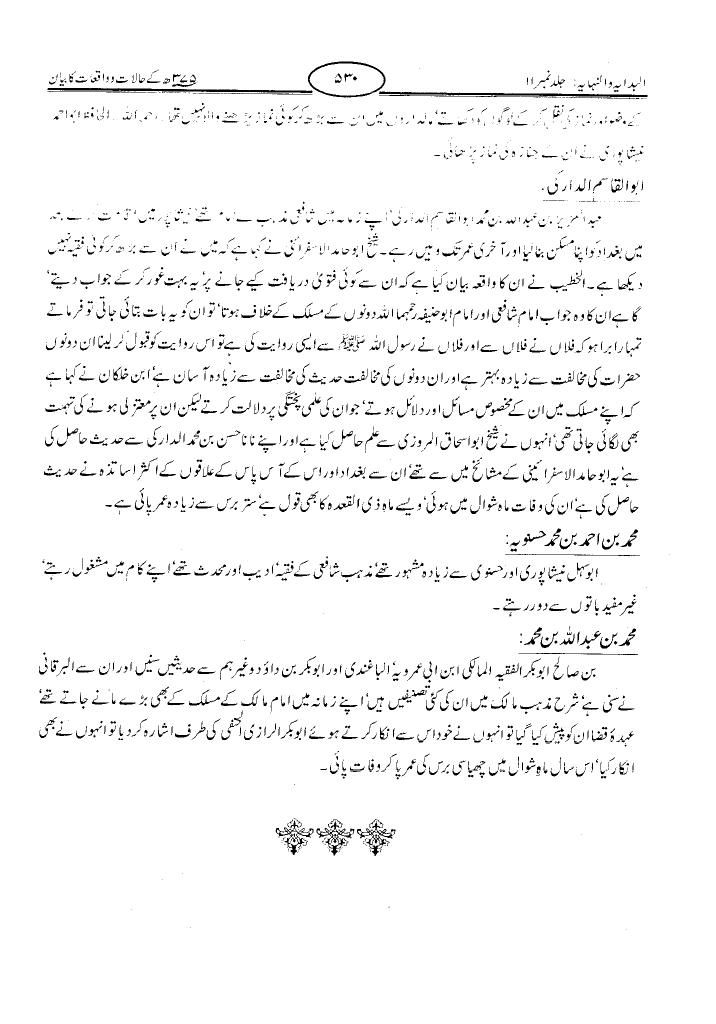 البدایہ والنہایہ: جلد نمبر ۱۱
۵۳۰
۳۷۵ھ کے حالات وواقعات کا بیان
کے وضو اور نماز کی نقل کر کے لوگوں کو دکھاتے‘ مالداروں میں ان سے بڑھ کر کوئی نماز پڑھنے والا نہیں تھا۔ رحمہ اللہ۔ الحافظ ابو احمد
نیشاپوری نے ان کے جنازہ کی نماز پڑھائی۔
ابوالقاسم الدارکی:
عبدالعزیز بن عبداللہ بن محمد ابوالقاسم الدارکی‘ اپنے زمانہ میں شافعی مذہب کے امام تھے‘ نیشاپور میں اقامت کے بعد
میں بغداد کو اپنا مسکن بنا لیا اور آخری عمر تک وہیں رہے۔ شیخ ابو حامد الاسفرائنی نے کہا ہے کہ میں نے ان سے بڑھ کر کوئی فقیہ نہیں
دیکھا ہے۔ الخطیب نے ان کا واقعہ بیان کیا ہے کہ ان سے کوئی فتویٰ دریافت کیے جانے پر‘ یہ بہت غور کر کے جواب دیتے‘
گاہے ان کا وہ جواب امام شافعی اور امام ابو حنیفہ رحمہما اللہ دونوں کے مسلک کے خلاف ہوتا‘ تو ان کو یہ بات بتائی جاتی تو فرماتے
تمہارا برا ہو کہ فلاں نے فلاں سے اور فلاں نے رسول اللہ ﷺ سے ایسی روایت کی ہے تو اس روایت کو قبول کر لینا ان دونوں
حضرات کی مخالفت سے زیادہ بہتر ہے اور ان دونوں کی مخالفت حدیث کی مخالفت سے زیادہ آسان ہے‘ ابن خلکان نے کہا ہے
کہ اپنے مسلک میں ان کے مخصوص مسائل اور دلائل ہوتے‘ جو ان کی علمی پختگی پر دلالت کرتے لیکن ان پر معتزلی ہونے کی تہمت
بھی لگائی جاتی تھی‘ انہوں نے شیخ ابو اسحاق المروزی سے علم حاصل کیا ہے اور اپنے نانا حسن بن محمد الدارکی سے حدیث حاصل کی
ہے‘ یہ ابو حامد الاسفرائینی کے مشائخ میں سے تھے‘ ان سے بغداد اور اس کے آس پاس کے علاقوں کے اکثر اساتذہ نے حدیث
حاصل کی ہے‘ ان کی وفات ماہ شوال میں ہوئی‘ ویسے ماہ ذی القعدہ کا بھی قول ہے‘ ستر برس سے زیادہ عمر پائی ہے۔
محمد بن احمد بن محمد حسنویہ:
ابو سہل نیشاپوری اور حسنوی سے زیادہ مشہور تھے‘ مذہب شافعی کے فقیہ‘ ادیب اور محدث تھے‘ اپنے کام میں مشغول رہتے‘
غیر مفید باتوں سے دور رہتے۔
محمد بن عبداللہ بن محمد:
بن صالح ابوبکر الفقیہ المالکی ابن ابی عمرویہ‘ الباغندی اور ابوبکر بن داؤد وغیرہم سے حدیثیں سنیں اور ان سے البرقانی
نے سنی ہے‘ شرح مذہب مالک میں ان کی کئی تصنیفیں ہیں‘ اپنے زمانہ میں امام مالک کے مسلک کے بھی بڑے مانے جاتے تھے‘
عہدۂ قضا ان کو پیش کیا گیا تو انہوں نے خود اس سے انکار کرتے ہوئے ابوبکر الرازی الحنفی کی طرف اشارہ کر دیا تو انہوں نے بھی
انکار کیا‘ اس سال ماہِ شوال میں چھیاسی برس کی عمر پا کر وفات پائی۔